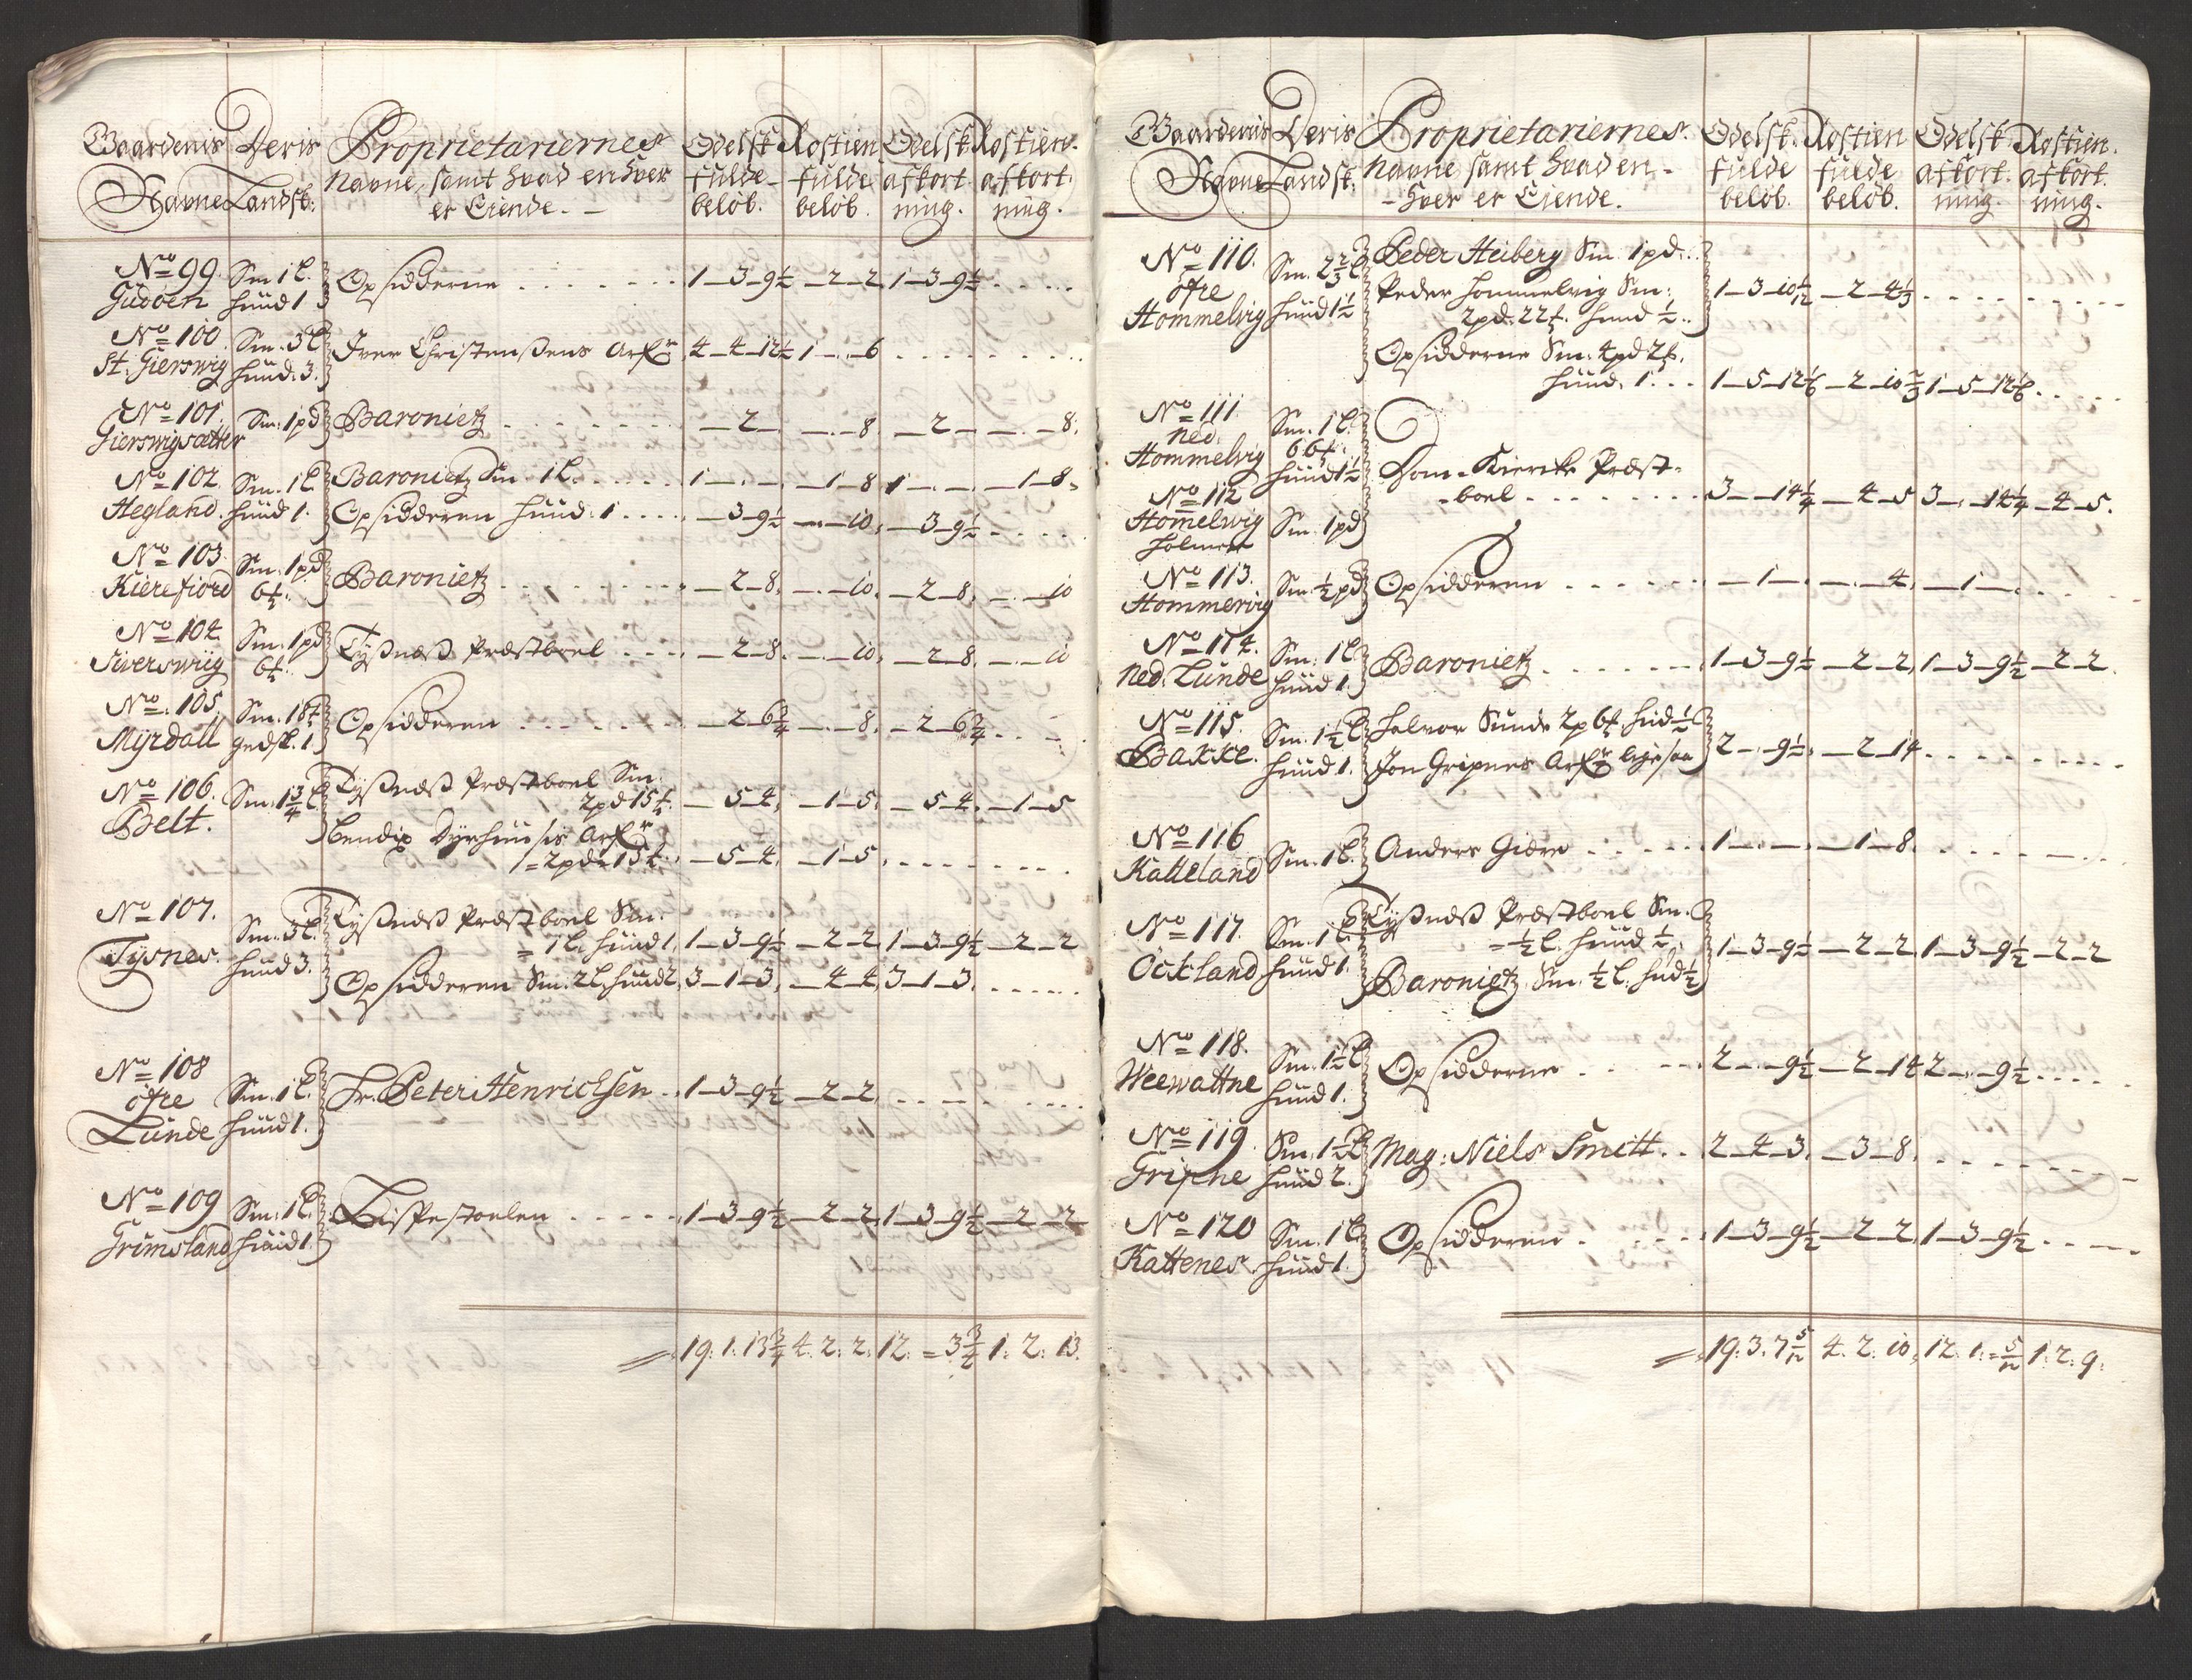 Gaardenis Deris Proprietariernes Odelsk. Rostien. Odelsk. Rostien.
Navne Landsk: Navne, samt hvad en hver fulde fulde afkort afkort
er Eiende. beløb. beløb. ning. ning.
No 99. Sm 1 l.
Gudøen huud 1 Opsidderne 1–3–9½ –2–2 1–3–9½
No 100. Sm. 3 l
St. Gierswig huud. 3. Iver Christensens Arf. 4–4–12½ 1–.–6
No 101. Sm: 1 pd Baronietz –2– –.–8. –2– –.–8.
Gierswigsætter
No 102. Sm. 1 l. Baronietz Sm 1 l. 1–.–. –1–8 1–.–. –1–8.
Hegland. huud 1. Opsidderen huud. 1 –3–9½ –.–10. –3–9½
No 103. Sm. 1 pd Baronietz –2–8. –.–10. –2–8. –.–10
Kierefiord 6
No 104. Sm. 1 pd Tyssness Præstboel –2–8. –.–10. –2–8. –.–10
Siverswiig 6
No. 105. Sm. 18 Opsidderen –2–6¾ –.–8. –2–6¾
Myrdall gedsk. 1.
No 106. Sm. 1¾ l Tyssness Præstboel Sm.
Belt. 2 pd 15 –5–4. –1–5. –5–4. –1–5
Bendix Dyrhuusis Arf
2 pd 15 –5–4. –1–5.
No 107. Sm. 3 l. Tyssness Præstboel Sm.
Tysnes. huud 3. 1 l. huud 1. 1–3–9½ –2–2 1–3–9½ –2–2
Opsidderen Sm. 2 l. huud 2. 3–1–3. –4–4 3–1–3.
No 108
öfre Sm. 1 l. Hr. Peter Henrichsen 1–3–9½ –2–2
Lunde huud 1.
No 109 Sm. 1 l. Bispestoelen 1–3–9½ –2–2 1–3–9½ –2–2
Grimsland huud 1.
19. 1. 13¾ 4. 2. 2. 12. = 3¾ 1. 2. 13.
Gaardenis Deris Proprietariernes Odelsk. Rostien Odelsk. Rostien.
Navne Landsk. Navne samt hvad en fulde fulde afkort. afkort.
hver er Eiende. beløb. beløb. ning. ning.
No 110. Sm. 2⅔ l Peder Heiberg Sm 1 pd.
öfre Peder Hommelvig Sm: 1–3–10 1/12 –2–4⅓
Hommelvig huud 1½ 2 pd. 22 huud ½
Opsidderne Sm. 4 pd 2
huud. 1. 1–5–12⅙ –2–10⅔ 1–5–12⅙
No 111. Sm. 1 l.
ned. 6
Hommelvig huud 1½ Dom-Kierke Præst-
No 112 boel 3–.–14¼ –4–5 3–.–14¼ –4–5.
Homelwig Sm. 1 pd
holmen
No 113. Sm. ½ pd Opsidderen –1– –.–4. –1–
Hommervig
No 114. Sm. 1 l. Baronietz 1–3–9½ –2–2. 1–3–9½ –2–2.
Ned. Lunde huud 1.
No 115. Sm. 1½ l Halvor Sunde 2 p 6 hud ½
Bakke. huud 1. Jon Gripnes Arf ligesaa 2–.–9½ –2–14.
No 116 Sm. 1 l. Anders Giære 1–.–. –1–8.
Katteland
No 117. Sm. 1 l. Tyssness Præstboel Sm.
Ockland huud 1. ½ l. huud ½. 1–3–9½ –2–2. 1–3–9½ –2–2
Baronietz Sm. ½ l. hud ½
No 118. Sm. 1½ l Opsidderne 2–.–9½ –2–14 2–.–9½
Weewattne huud 1.
No 119. Sm. 1½ l Mag: Niels Smitt. 2–4–3. –3–8.
Gripne huud 2.
No 120 Sm. 1 l. Opsidderen 1–3–9½ –2–2. 1–3–9½
Kattenes. huud 1.
19. 3. 7 5/12 4. 2. 10. 12. 1. = 5/12 1. 2. 9.